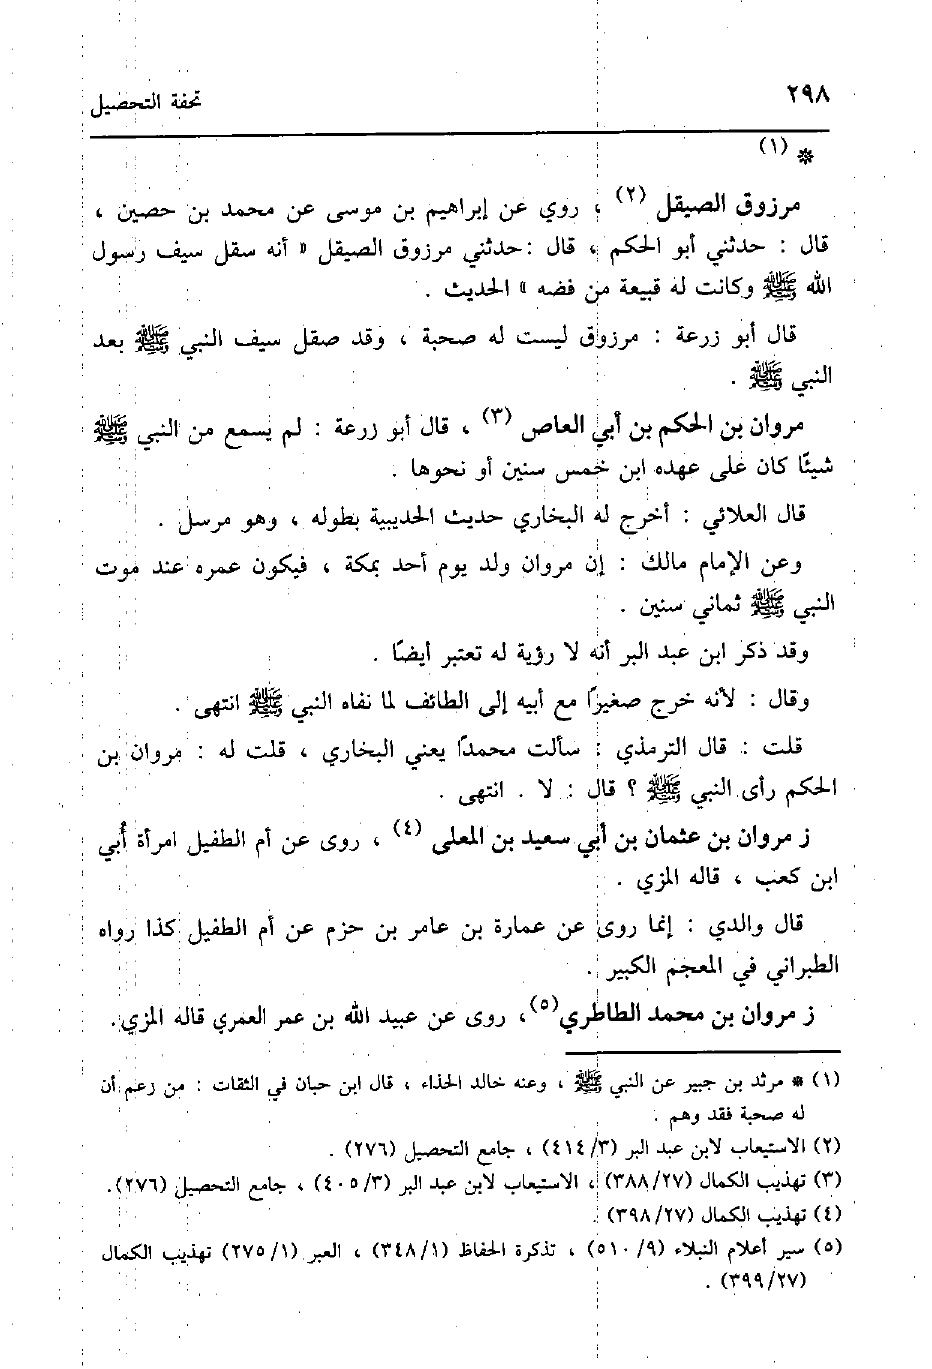 ٢٩٨
تحفة التحصيل
* (١)
مرزوق الصيقل (٢) ، روي عن إبراهيم بن موسى عن محمد بن حصين ،
قال : حدثني أبو الحكم ، قال : حدثني مرزوق الصيقل « أنه سقل سيف رسول
الله ﷺ وكانت له قبيعة من فضه » الحديث .
قال أبو زرعة : مرزوق ليست له صحبة ، وقد صقل سيف النبي ﷺ بعد
النبي ﷺ .
مروان بن الحكم بن أبي العاص (٣) ، قال أبو زرعة : لم يسمع من النبي ﷺ
شيئًا كان على عهده ابن خمس سنين أو نحوها .
قال العلائي : أخرج له البخاري حديث الحديبية بطوله ، وهو مرسل .
وعن الإمام مالك : إن مروان ولد يوم أحد بمكة ، فيكون عمره عند موت
النبي ﷺ ثماني سنين .
وقد ذكر ابن عبد البر أنه لا رؤية له تعتبر أيضًا .
وقال : لأنه خرج صغيرًا مع أبيه إلى الطائف لما نفاه النبي ﷺ انتهى .
قلت : قال الترمذي : سألت محمدًا يعني البخاري ، قلت له : مروان بن
الحكم رأى النبي ﷺ ؟ قال : لا . انتهى .
ز مروان بن عثمان بن أبي سعيد بن المعلى (٤) ، روى عن أم الطفيل امرأة أُبي
ابن كعب ، قاله المزي .
قال والدي : إنما روى عن عمارة بن عامر بن حزم عن أم الطفيل كذا رواه
الطبراني في المعجم الكبير .
ز مروان بن محمد الطاطري (٥)، روى عن عبيد الله بن عمر العمري قاله المزي.
(١) * مرثد بن جبير عن النبي ﷺ ، وعنه خالد الحذاء ، قال ابن حبان في الثقات : من زعم أن
له صحبة فقد وهم .
(٢) الاستيعاب لابن عبد البر (٤١٤/٣) ، جامع التحصيل (٢٧٦) .
(٣) تهذيب الكمال (٣٨٨/٢٧) ، الاستيعاب لابن عبد البر (٤٠٥/٣) ، جامع التحصيل (٢٧٦).
(٤) تهذيب الكمال (٣٩٨/٢٧) .
(٥) سير أعلام النبلاء (٥١٠/٩) ، تذكرة الحفاظ (٣٤٨/١) ، العبر (٢٧٥/١) تهذيب الكمال
(٣٩٩/٢٧) .